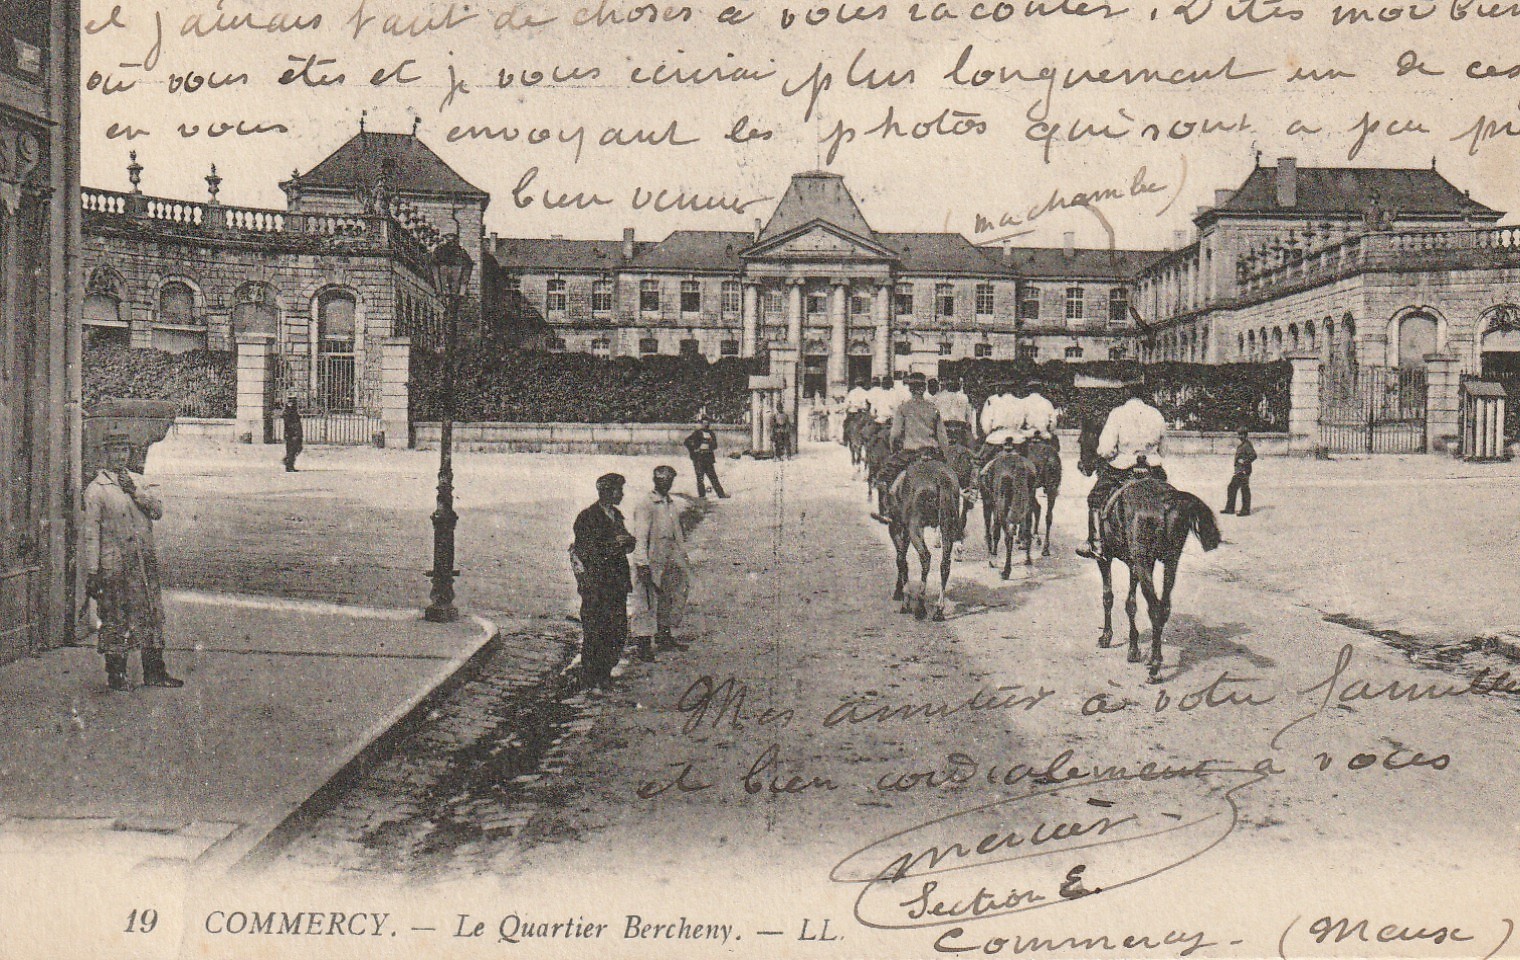 et jamais tant de choses à vous raconter. Dites moi bien
où vous êtes et je vous écrirai plus longuement un de ces
en vous envoyant les photos qui sont a peu pr
bien venues
(ma chambre)
Mes amitiés à votre famille
et bien cordialement à vous
Mercier
Section E.
Commercy - (Meuse)
19 COMMERCY. — Le Quartier Bercheny. — LL.